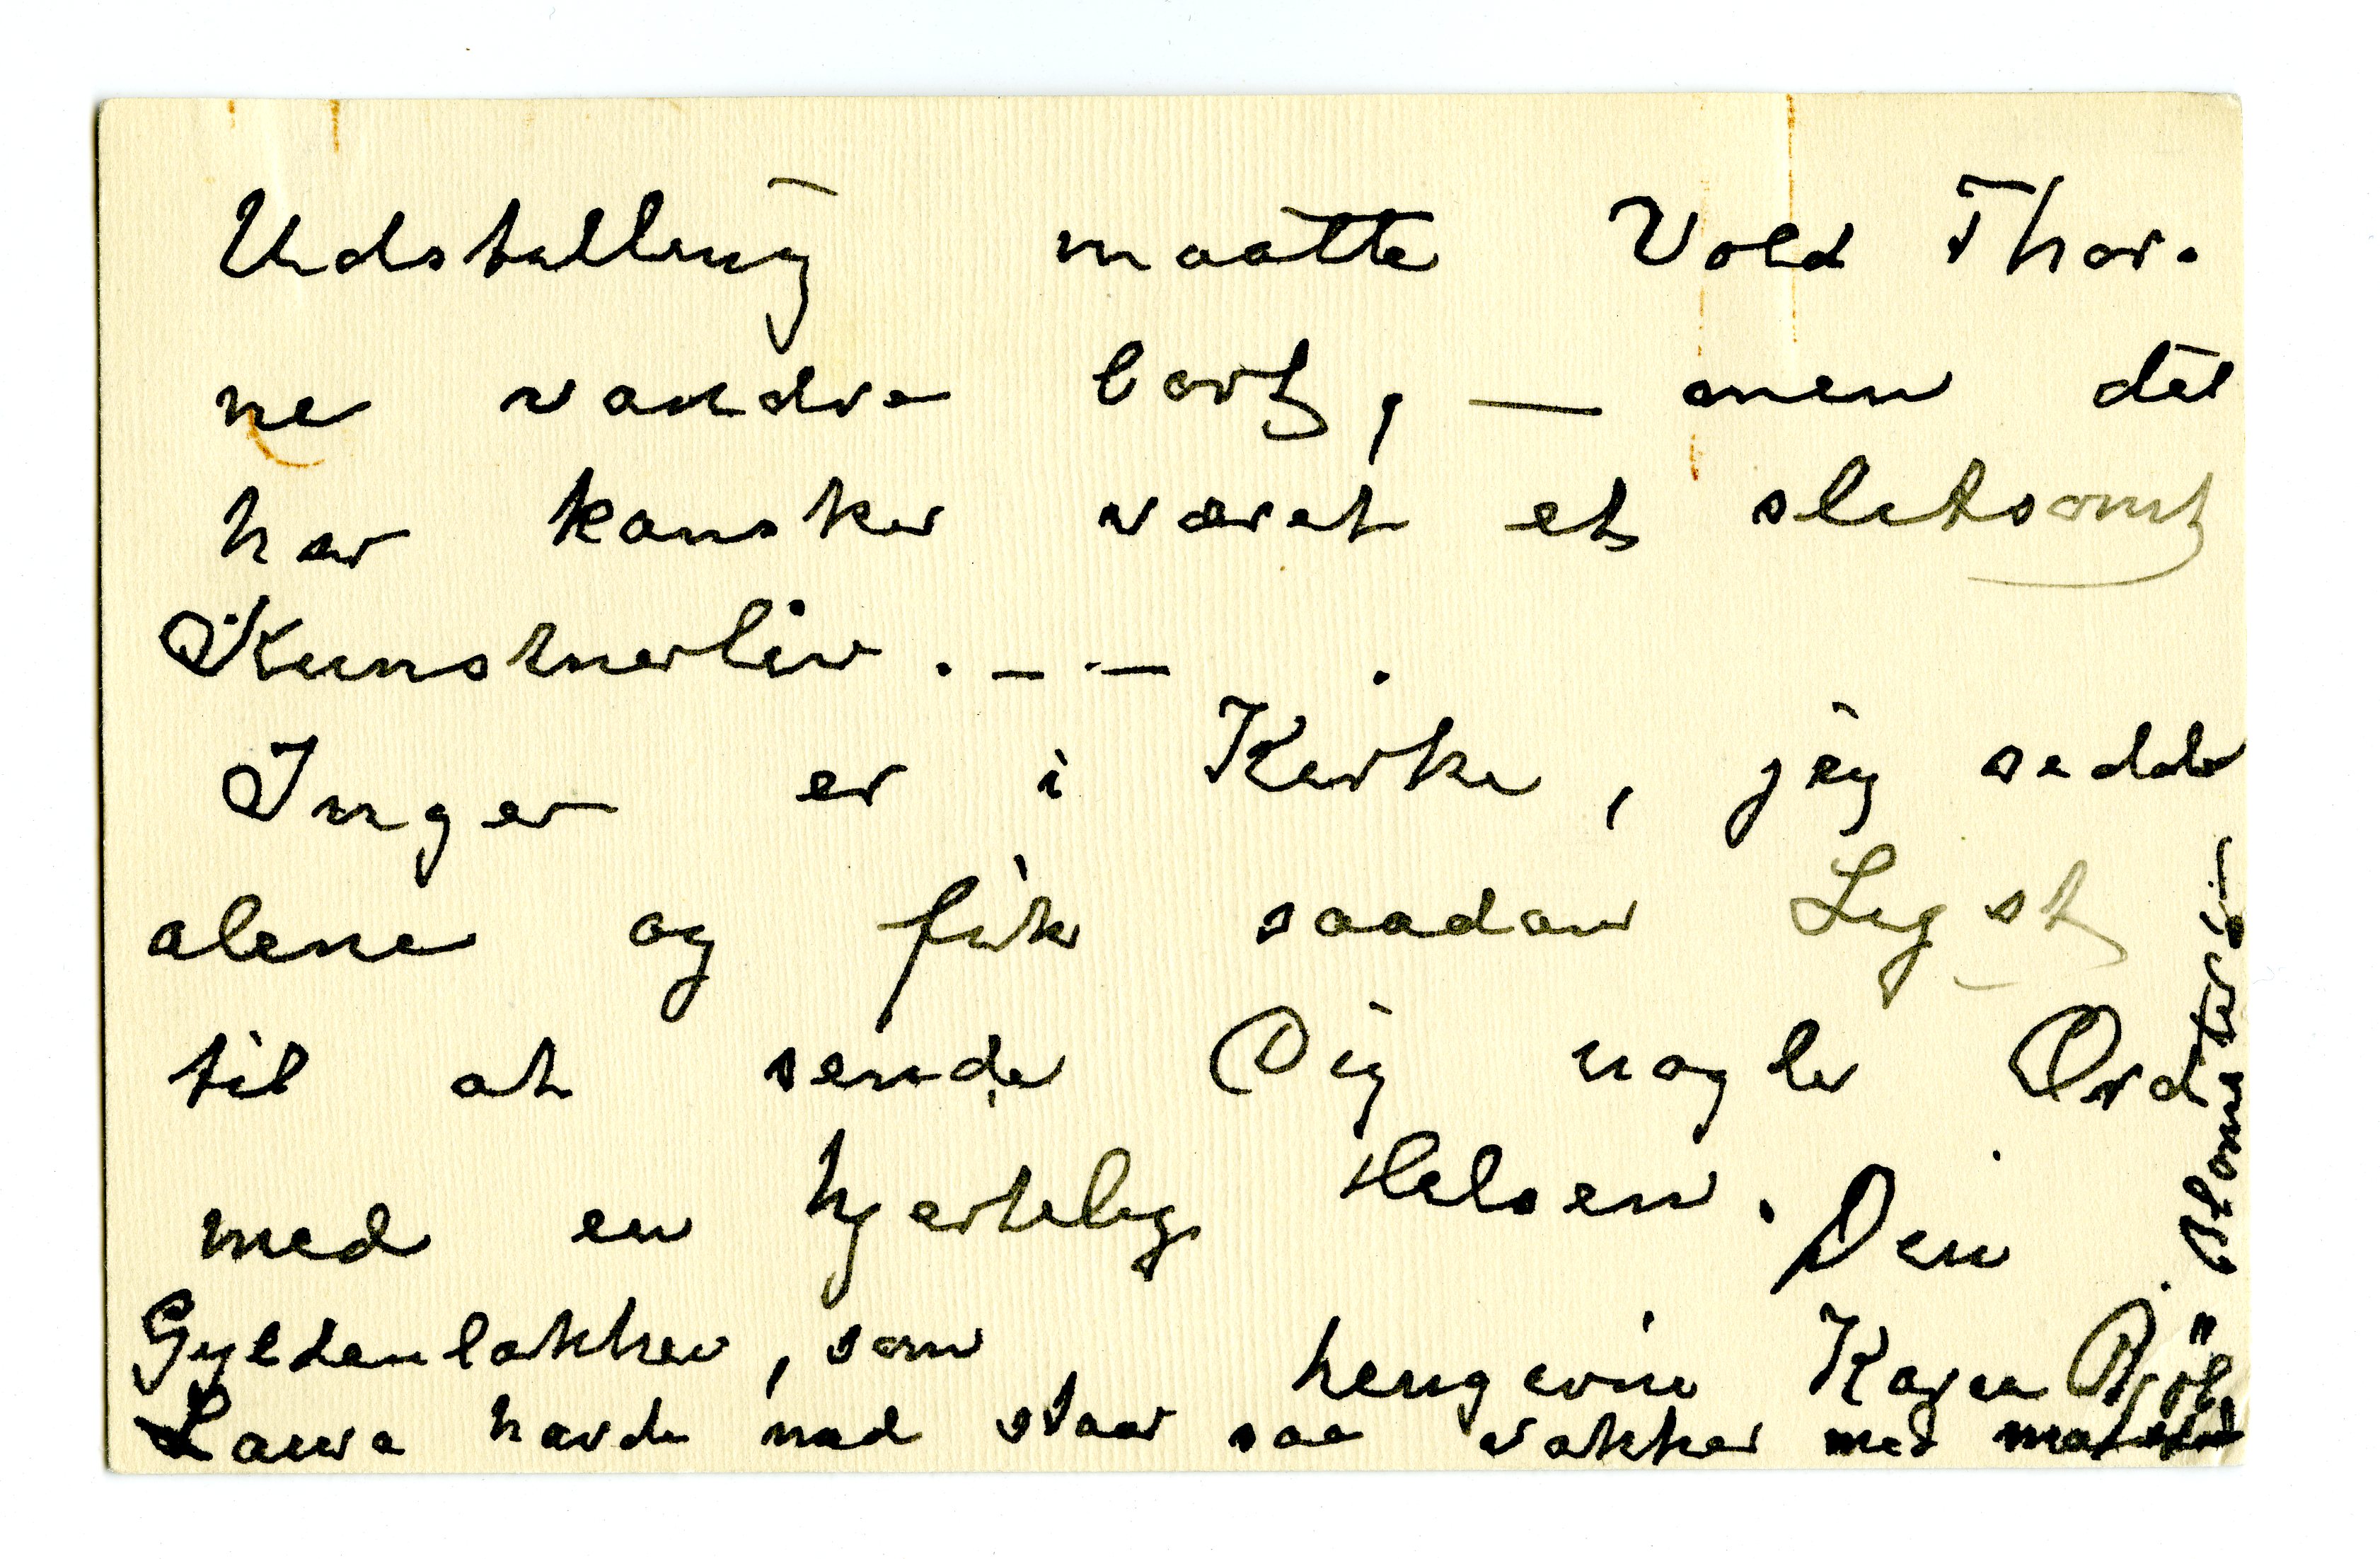 Udstilling maatte Vold Thor-
ne vandre bort, — men det
har kansker været et slitsomt
Kunstnerliv. — —
Inger er i Kirke, jeg sidder
alene og fik saadan Lyst
til at sende Dig nogle Ord
med en hjertelig Hilsen. Din
hengivne Kaja
Gyldenlakker, som
Laura havde med staar saa vakker med
Blomster i